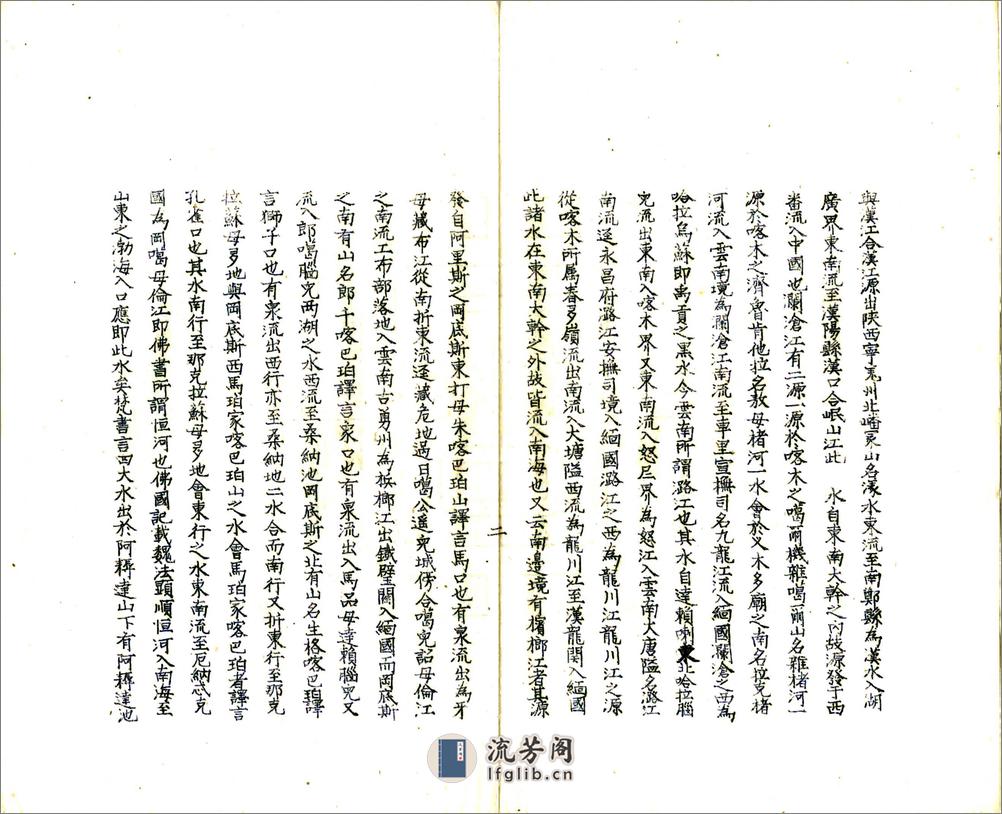 與漢江合漢江源出陝西寧羗州北嶓冢山名漾水東流至南鄭縣為漢水入湖
廣界東南流至漢陽縣漢口合岷山江此 水自東南大幹之內故源發于西
番流入中國也瀾滄江有二源一源於喀木之噶爾機雜噶爾山名雜楮河一
源於喀木之濟魯肯他拉名敖母楮河一水會於叉木多廟之南名拉克楮
河流入雲南境為瀾滄江南流至車里宣撫司名九龍江流入緬國瀾滄之西為
哈拉烏蘇即禹貢之黑水今雲南所謂潞江也其水自達賴喇東北哈拉腦
兒流出東南入喀木界又東南流入怒尼界為怒江入雲南大唐隘名潞江
南流逕永昌府潞江安撫司境入緬國潞江之西為龍川江龍川江之源
從喀木所屬春多嶺流出南流入大塘隘西流為龍川江至漢龍関入緬國
此諸水在東南大幹之外故皆流入南海也又云南邊境有檳榔江者其源
二
發自阿里斯之岡底斯東打母朱喀巴珀山譯言馬口也有泉流出為牙
母藏布江從南折東流逕藏危地過日噶公噶兒城傍合噶兒詔母倫江
之南流工布部落地入雲南古勇州為梹榔江出鐵壁關入緬國而岡底斯
之南有山名郎千喀巴珀譯言家口也有泉流出入馬品母達賴腦兒又
流入郎噶腦兒兩湖之水西流至桑納池岡底斯之北有山名生格喀巴珀譯
言獅子口也有泉流出西行亦至桑納地二水合而南行又折東行至那克
拉蘇母多地與岡底斯西馬珀家喀巴珀山之水會馬珀家喀巴珀者譯言
孔雀口也其水南行至那克拉蘇母多地會東行之水東南流至厄納忒克
國為岡噶母倫江即佛書所謂恒河也佛國記載魏法顯順恒河入南海至
山東之渤海入口應即此水矣梵書言四大水出於阿耨達山下有阿耨達池
流芳阁
lfglib.cn